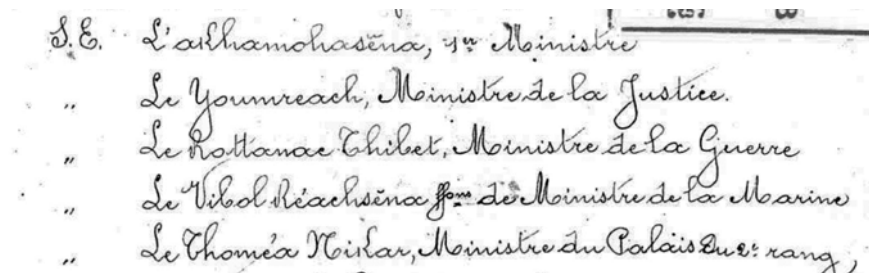 S.E. L'akhamohaséna, 1er Ministre
" Le Youmreach, Ministre de la Justice.
" Le Rottanac Thibet, Ministre de la Guerre
" Le Vibol Réachséna ffons de Ministre de la Marine
" Le Thoméa Nikar, Ministre du Palais du 2e rang,